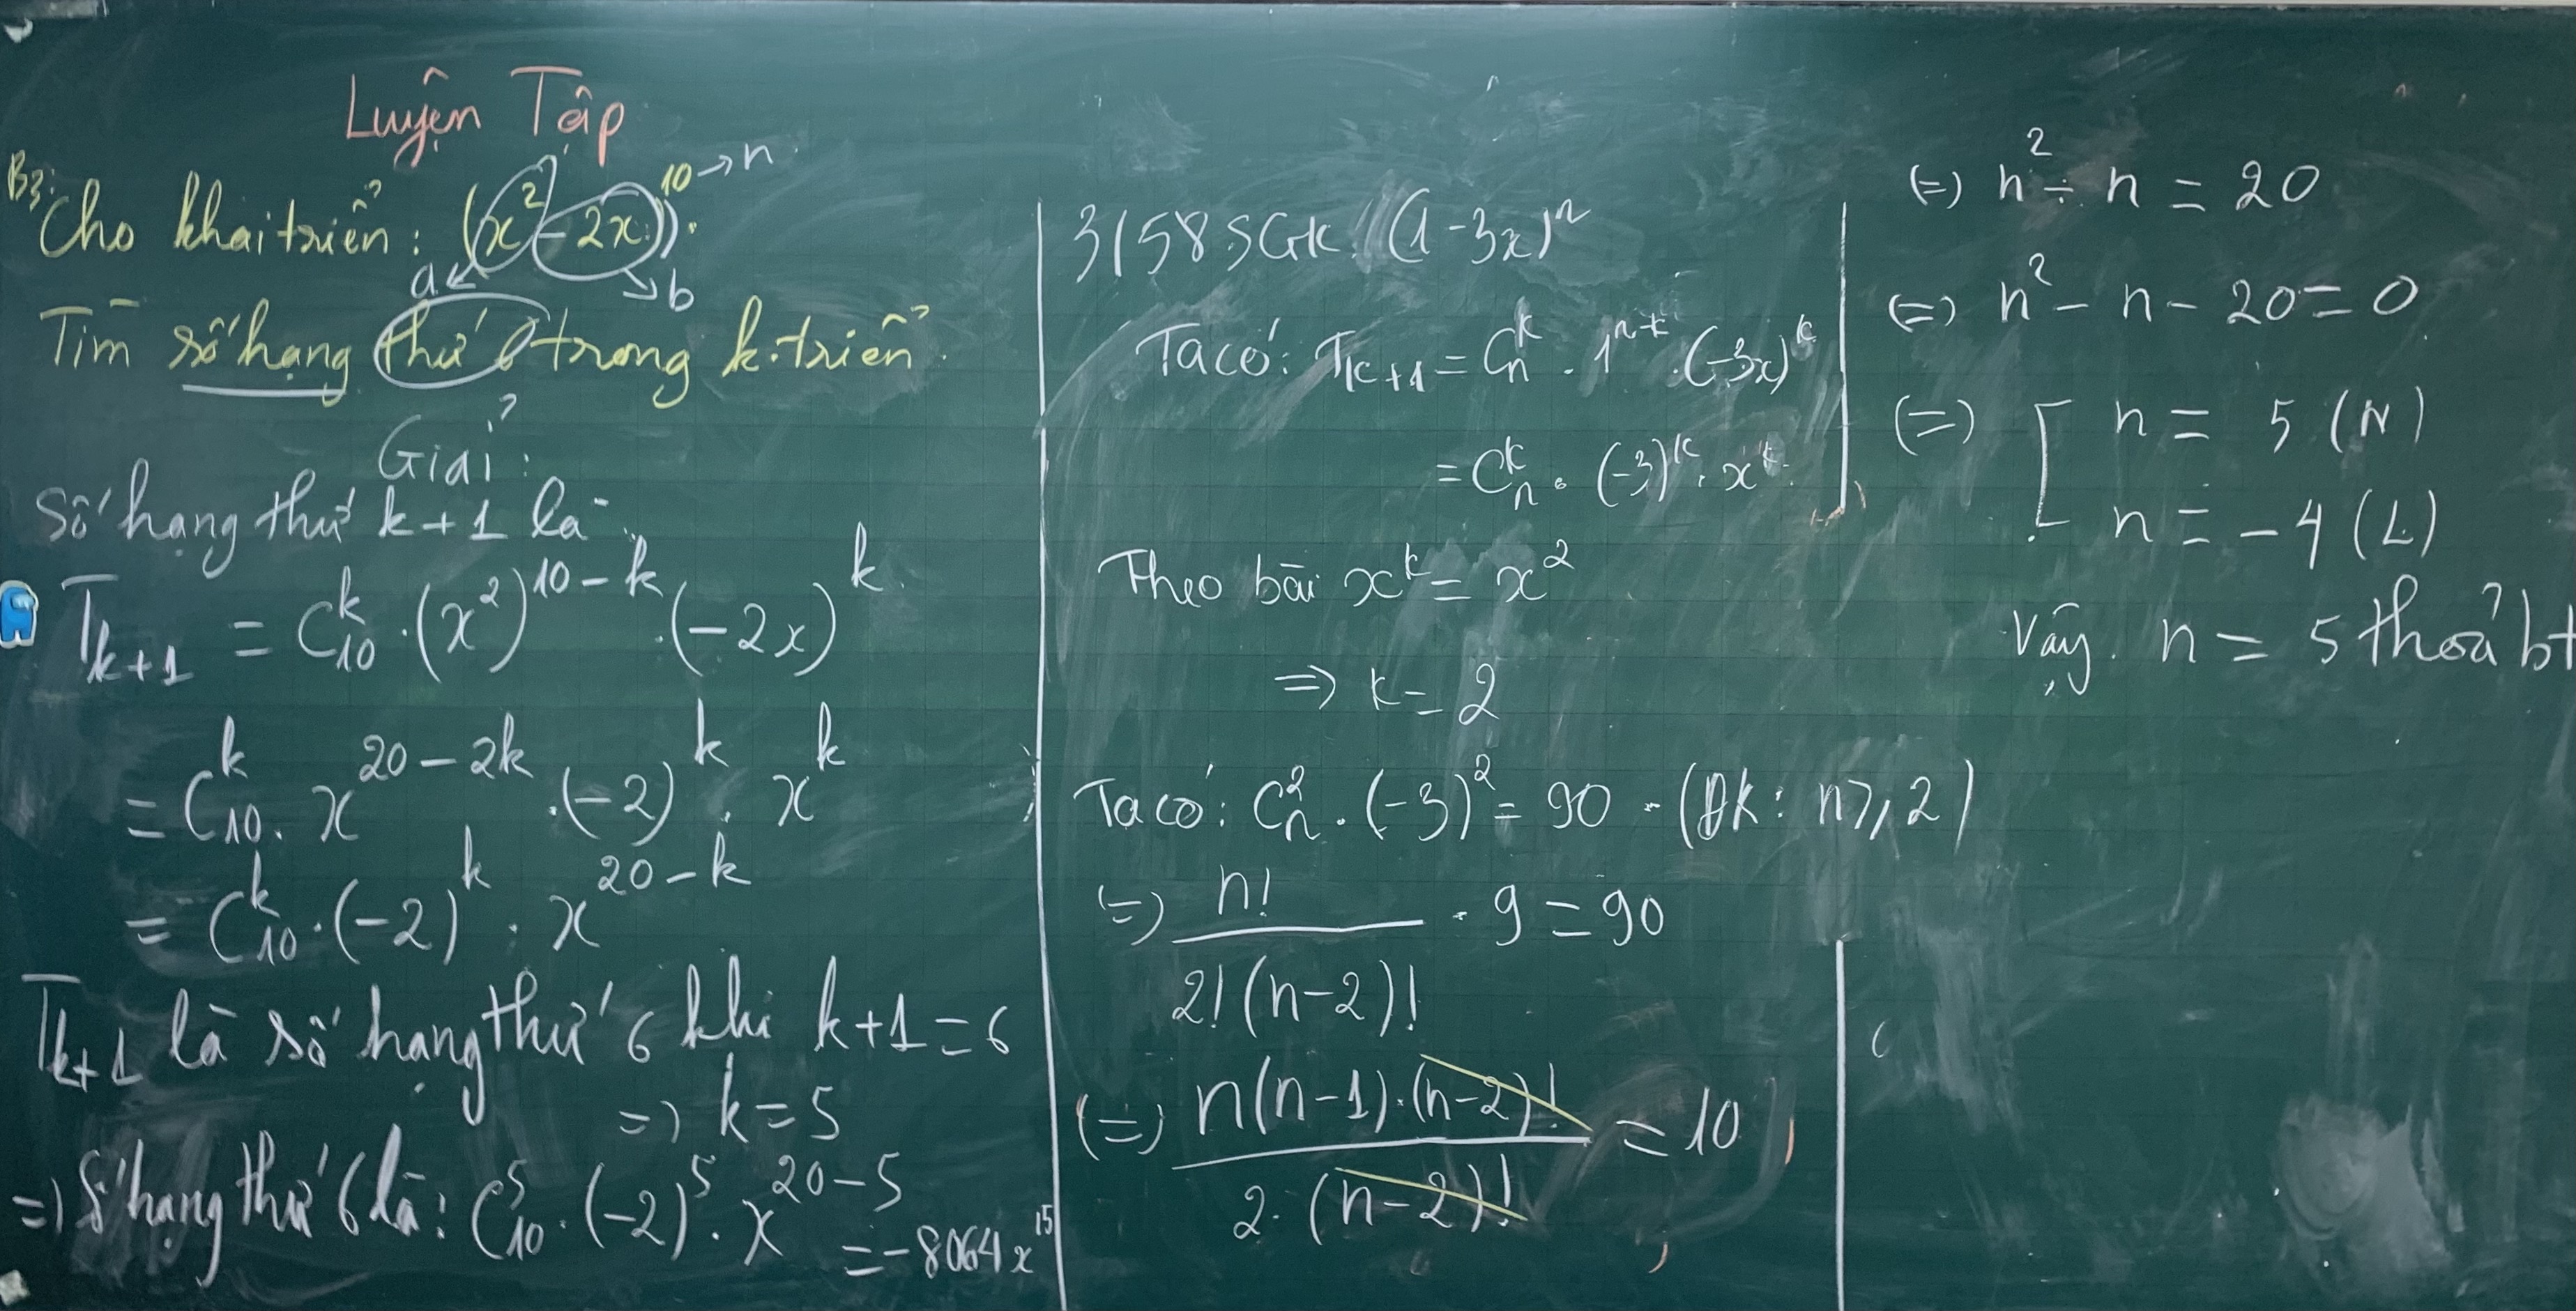 Luyện Tập
B3: Cho khai triển: (x² - 2x)¹⁰ → n
a b
Tìm số hạng thứ 6 trong k.triển
Giải:
Số hạng thứ k+1 là
T_{k+1} = C_{10}^k . (x²)^{10-k} . (-2x)^k
= C_{10}^k . x^{20-2k} . (-2)^k . x^k
= C_{10}^k . (-2)^k . x^{20-k}
T_{k+1} là số hạng thứ 6 khi k+1 = 6
=> k = 5
=> S hạng thứ 6 là: C_{10}^5 . (-2)^5 . x^{20-5} = -8064x^{15}
3/58 SGK (1-3x)^n
Ta có: T_{k+1} = C_n^k . 1^{n-k} . (-3x)^k
= C_n^k . (-3)^k . x^k
Theo bài x^k = x²
=> k = 2
Ta có: C_n^2 . (-3)² = 90 (Đk: n ⩾ 2)
(=) n! / 2!(n-2)! . 9 = 90
(=) n(n-1).(n-2)! / 2.(n-2)! = 10
(=) n² - n = 20
(=) n² - n - 20 = 0
(=) [ n = 5 (N)
n = -4 (L)
Vậy n = 5 thoả bt